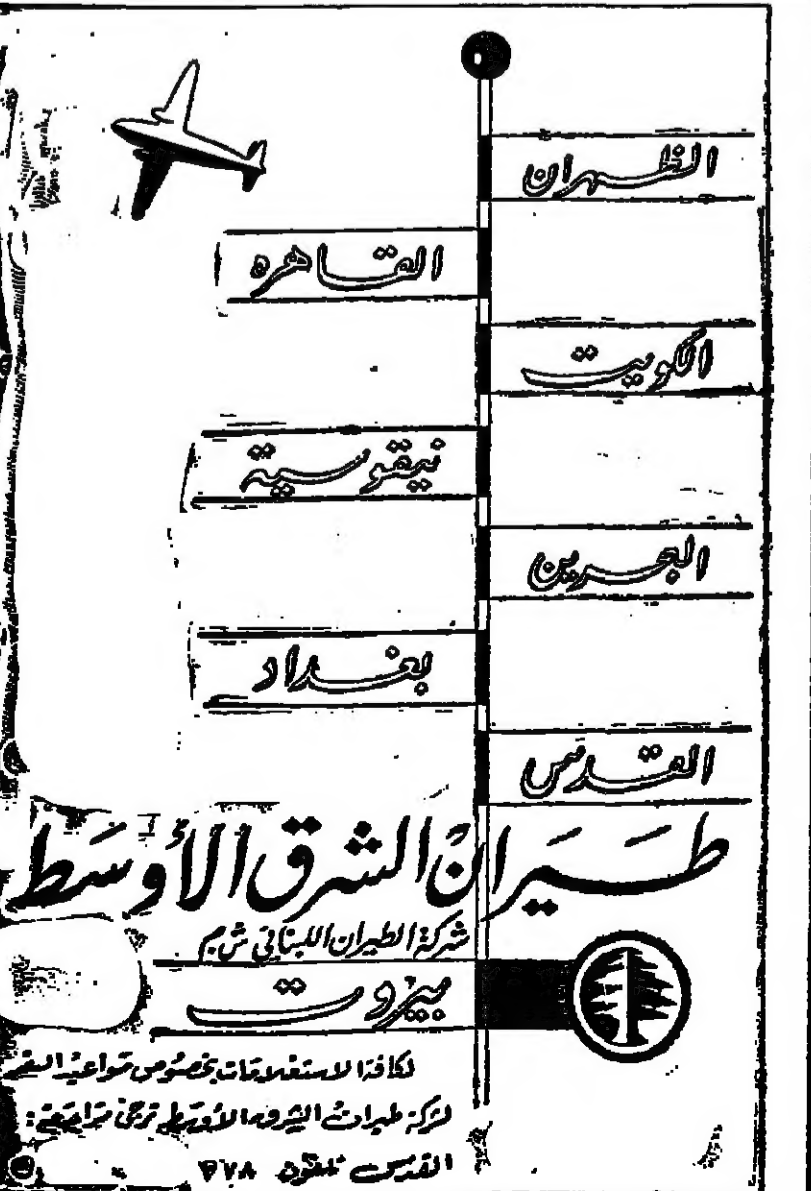 الظهران
القاهرة
الكويت
نيقوسية
البحرين
بغداد
القدس
طيران الشرق الأوسط
شركة الطيران اللبناني ش م
بيروت
لكافة الاستعلامات بخصوص مواعيد السفر
لشركة طيران الشرق الأوسط ترجى مراجعة :
القدس تلفون ٣٧٨